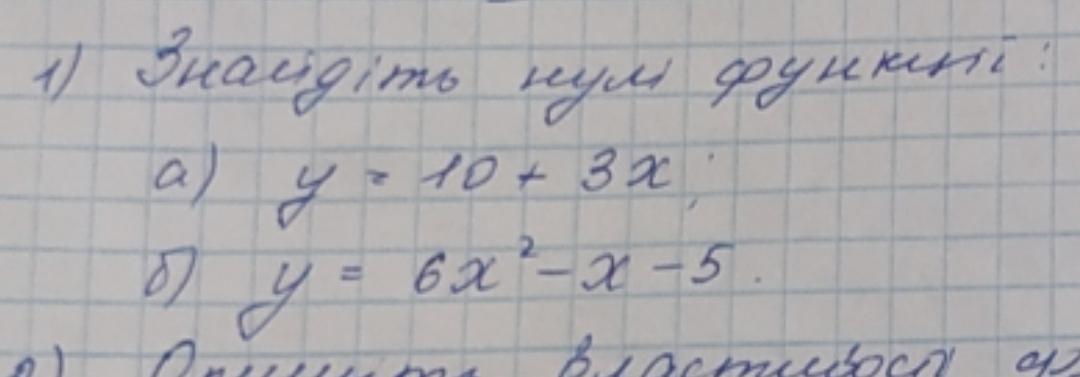 1) Знайдіть нулі функції:
а) y = 10 + 3x;
б) y = 6x² - x - 5.
властивості